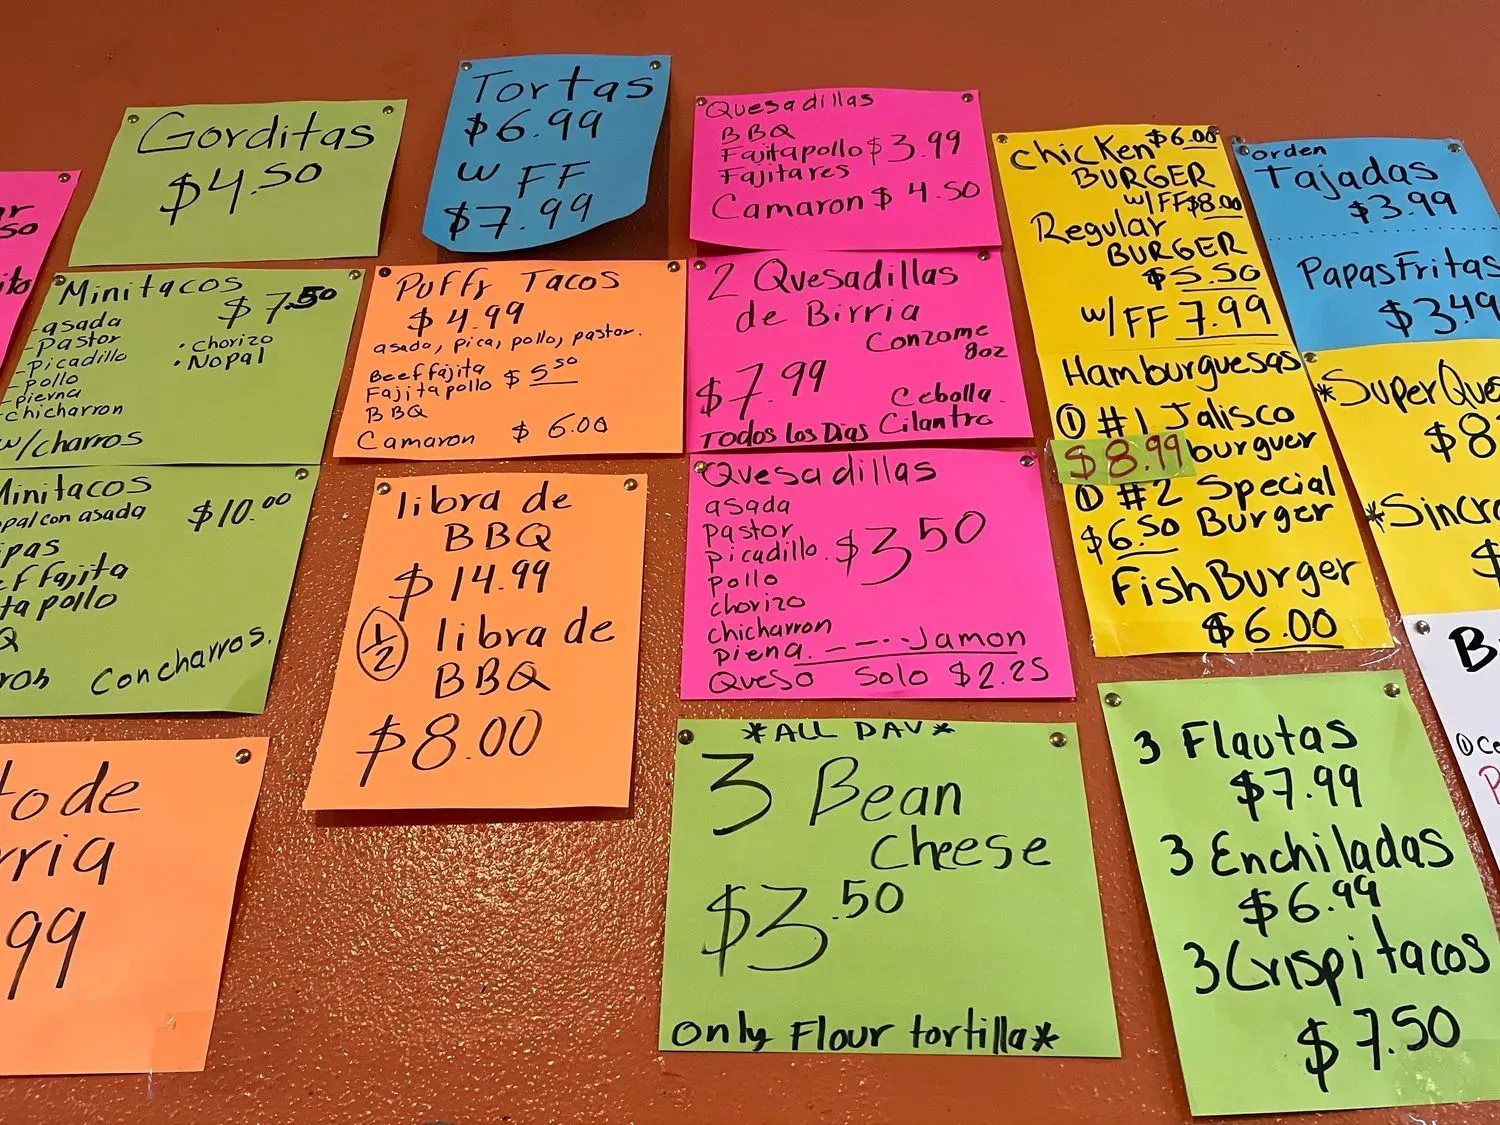 Gorditas
$4.50
Tortas
$6.99
w FF
$7.99
Quesadillas
BBQ
Fajita pollo $3.99
Fajita res
Camaron $4.50
Chicken $6.00
BURGER
w/FF $8.00
Regular
BURGER
$5.50
w/FF 7.99
Hamburguesas
① #1 Jalisco
$8.99 burguer
① #2 Special
$6.50 Burger
Fish Burger
$6.00
orden
Tajadas
$3.99
Papas Fritas
$3.49
*Super Que
$8
*Sincro
$
Minitacos
$7.50
-asada
-Pastor
-Picadillo
-pollo
-pierna
-chicharron
• chorizo
• Nopal
w/charros
Minitacos
$10.00
pal con asada
ipas
ef fajita
ta pollo
Q
ron
Con charros.
Puffy Tacos
$4.99
asada, pica, pollo, pastor.
Beef fajita
Fajita pollo $5.50
BBQ
Camaron $6.00
2 Quesadillas
de Birria
Conzome
8oz
$7.99
Cebolla
Todos los Dias Cilantro
libra de
BBQ
$14.99
1/2 libra de
BBQ
$8.00
Quesadillas
asada
pastor
picadillo. $3.50
pollo
chorizo
chicharron
piena. ---·· Jamon
Queso Solo $2.25
to de
rria
99
*ALL DAY*
3 Bean
Cheese
$3.50
only Flour tortilla*
3 Flautas
$7.99
3 Enchiladas
$6.99
3 Crispi tacos
$7.50
B
① Ce
P